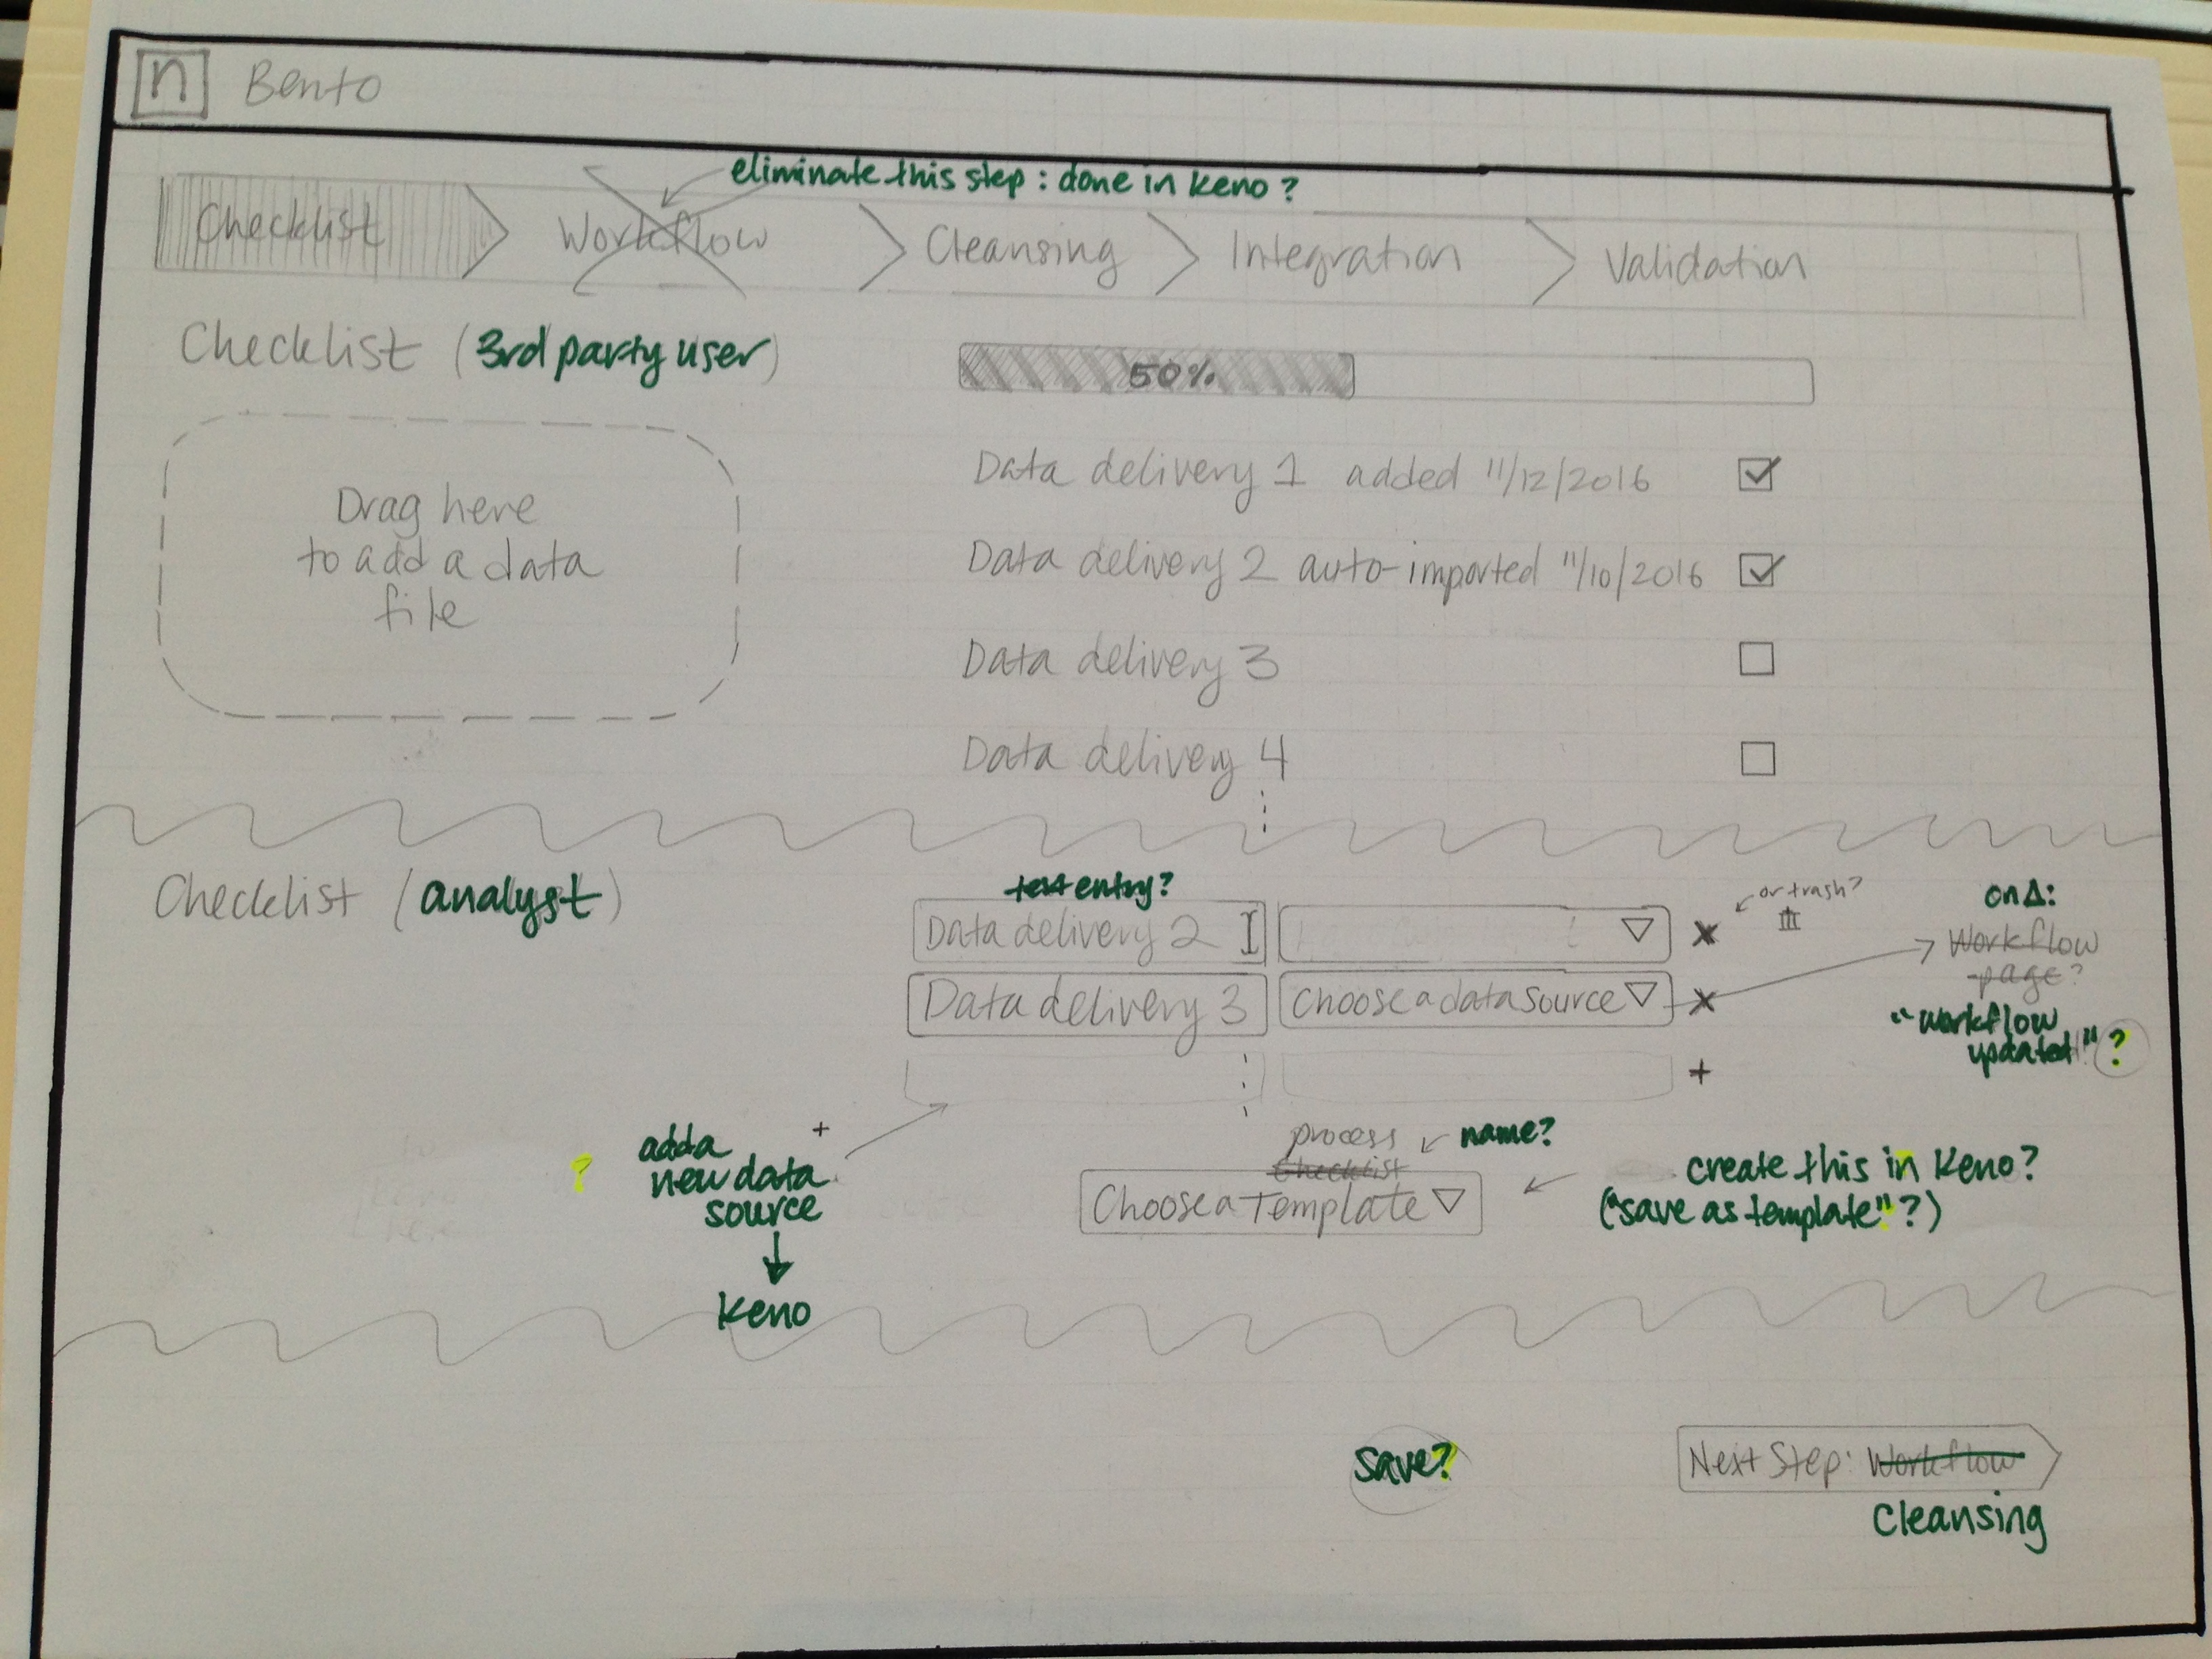 n Bento
eliminate this step: done in Keno?
Checklist Workflow Cleansing Integration Validation
Checklist (3rd party user)
50%
Drag here
to add a data
file
Data delivery 1 added 11/12/2016
Data delivery 2 auto-imported 11/10/2016
Data delivery 3
Data delivery 4
Checklist (analyst)
text entry?
Data delivery 2
or trash?
Data delivery 3 Choose a data source
on Δ:
Workflow
page?
"workflow
updated!" ?
+
? add a +
new data
source
Keno
process name?
Checklist
Choose a Template
create this in Keno?
("save as template"?)
save?
Next Step: Workflow
Cleansing